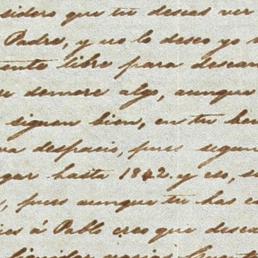 sidero que tu deseas ver
Padre, y no lo deseo yo
ento libre para descan
demore algo, aunque
siguen bien, en tu her
ra despacio, pues segun
gar hasta 1842. y eso, s
, pues aunque tu has es
á Pablo creo que desea